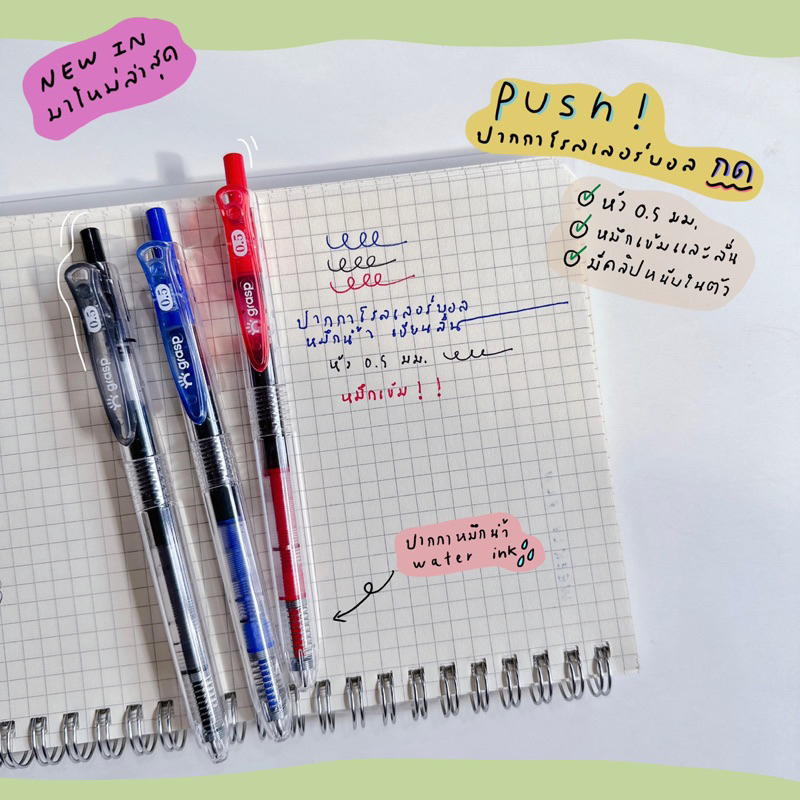 NEW IN
มาใหม่ล่าสุด
push!
ปากกาโรลเลอร์บอล กด
หัว 0.5 มม.
หมึกเข้มและลื่น
มีคลิปหนีบในตัว
0.5
grasp
0.5
grasp
0.5
grasp
ปากกาโรลเลอร์บอล
หมึกน้ำ เขียนลื่น
หัว 0.5 มม.
หมึกเข้ม!!
ปากกาหมึกน้ำ
water ink